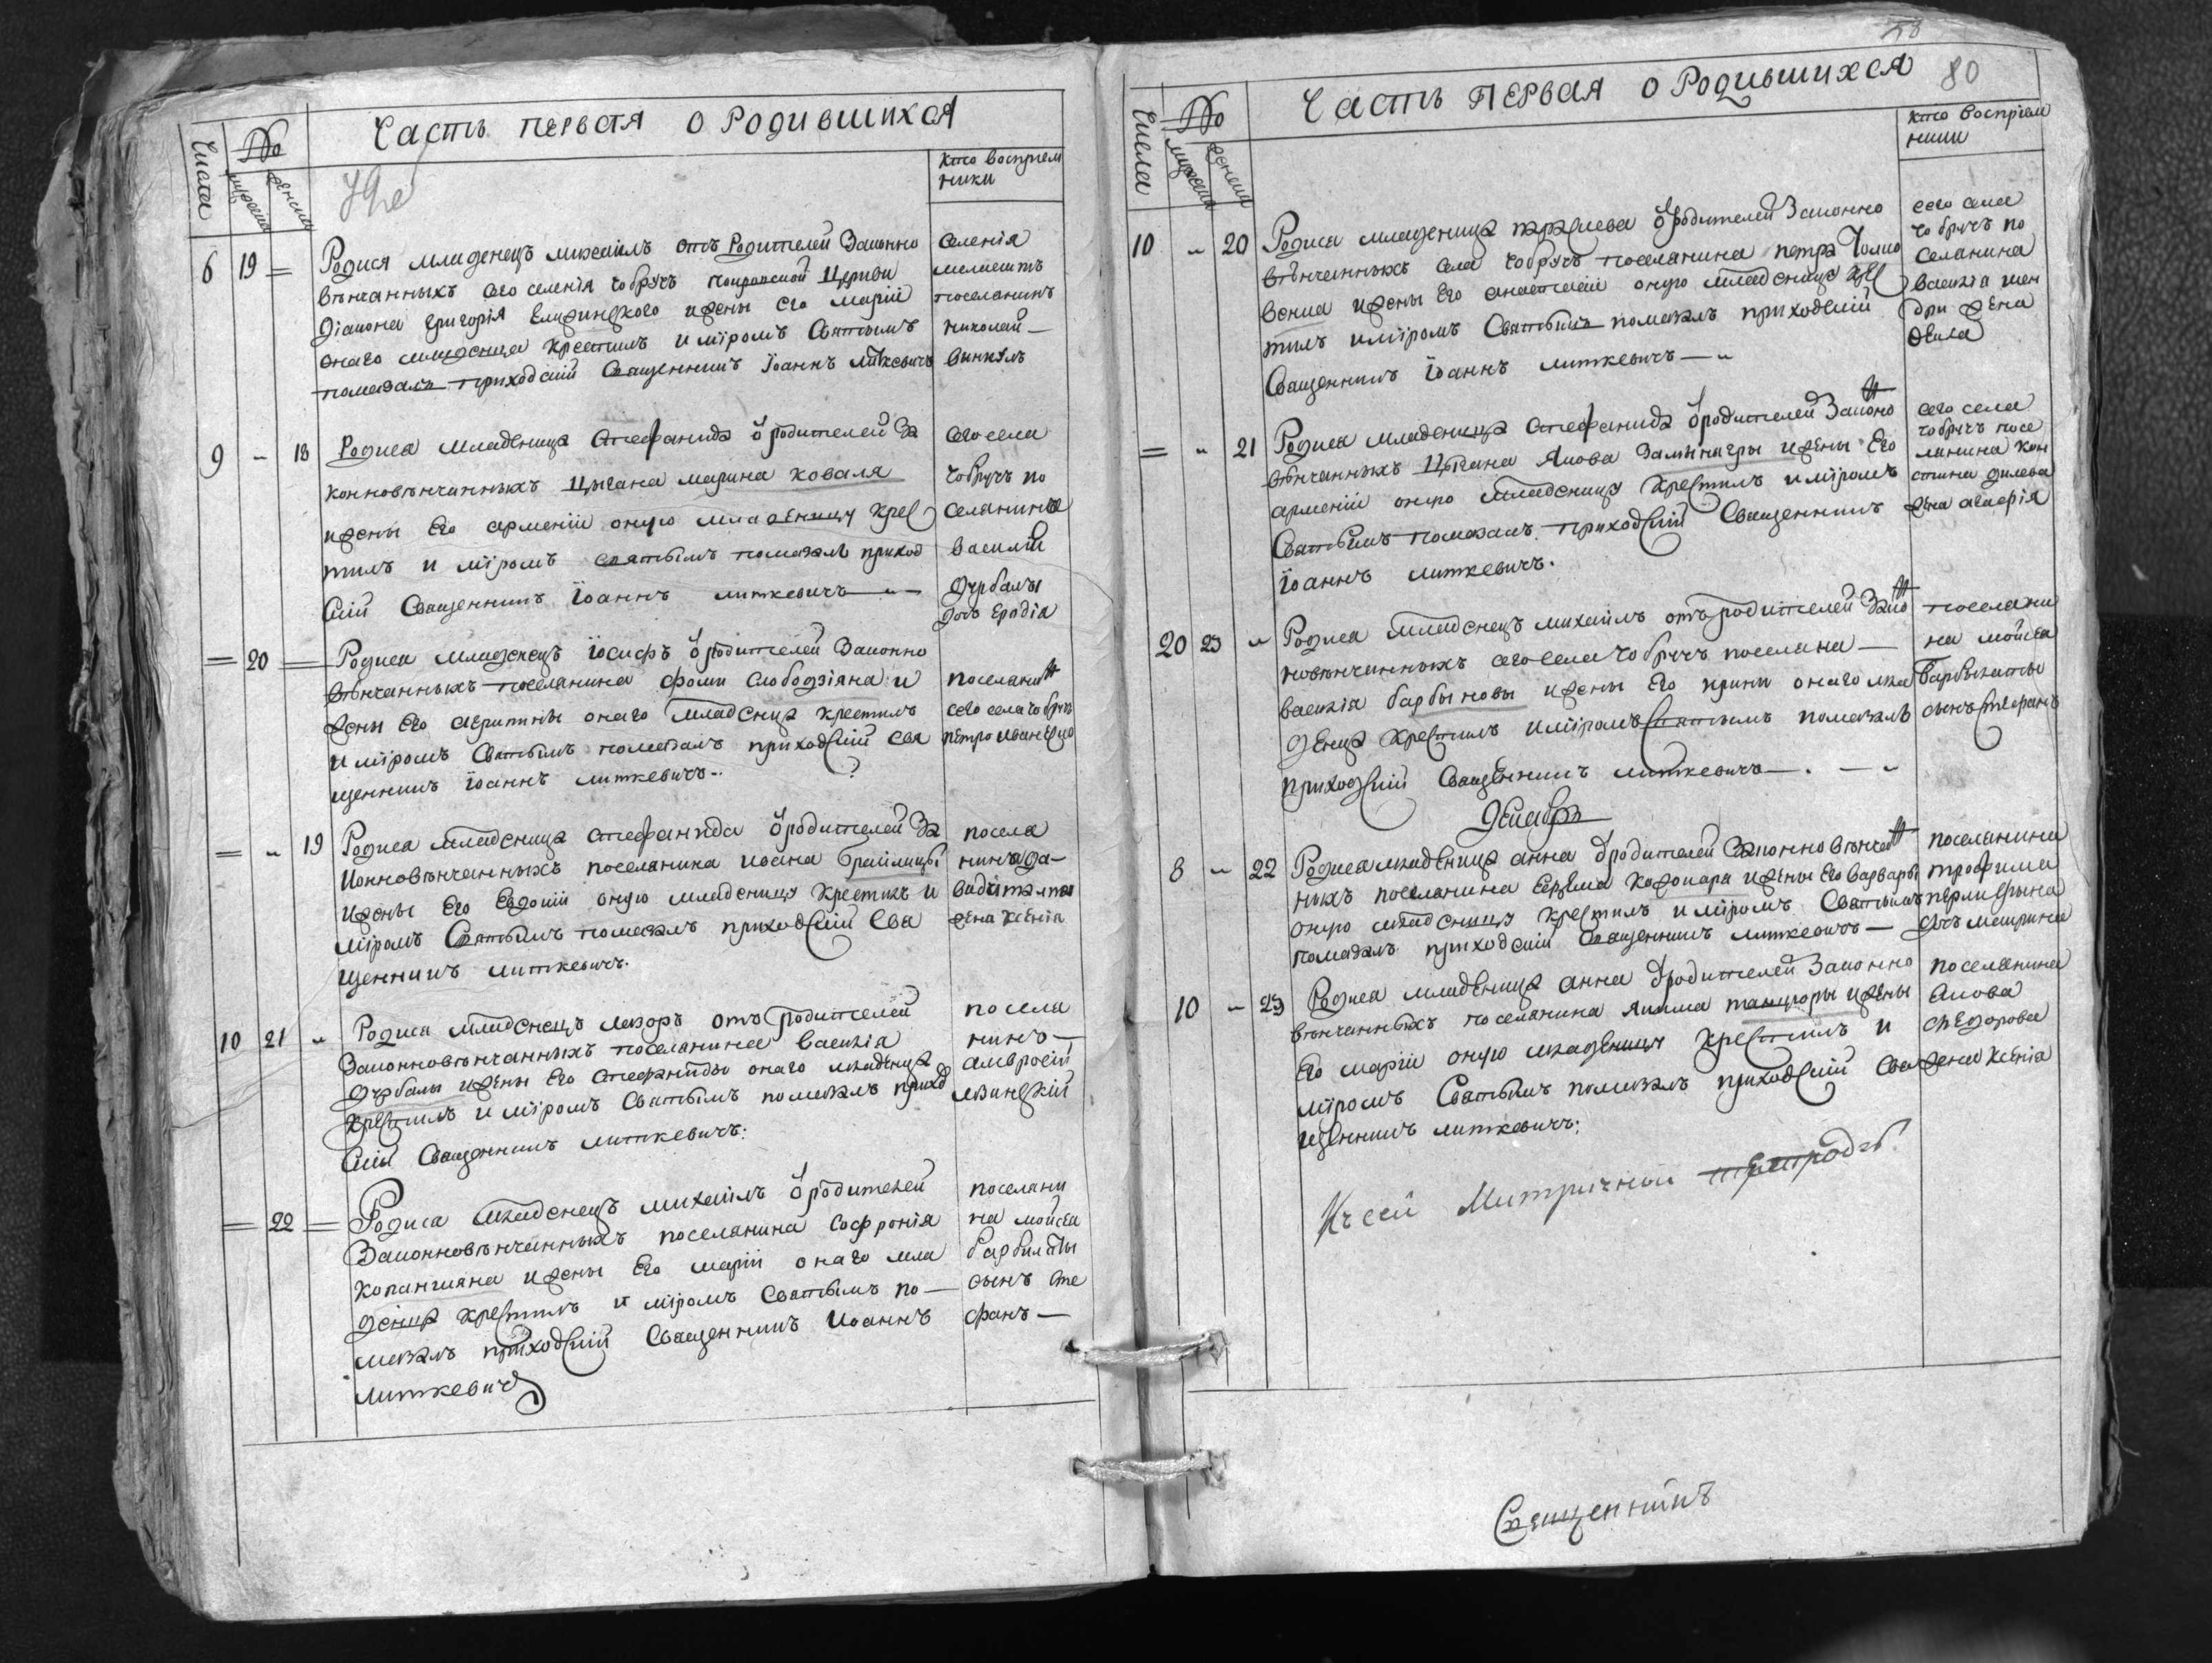 Часть первая о Родившихся
Числа
№
мужеска
женска
кто восприем
ники
79
6 19 = Родися младенецъ михаилъ отъ Родителей Законно
вѣнчанныхъ сего селенія чобручъ покровской Церкви
Діакона григорія и жены его маріи
онаго младенца крестилъ и мѵромъ Святымъ
помазалъ приходскій Священникъ Іоаннъ литкевичъ
селенія
поселанинъ
николай —
9 - 18 Родися младеница стефанида ѿ родителей За
конновѣнчанныхъ Цыгана марина коваля
и жены Его арменіи оную младеницу крес
тилъ и мѵромъ святымъ помазалъ приход
скій Священникъ Іоаннъ литкевичъ
сего села
чобручъ по
селанина
василія
дурбалы
дочь
= 20 = Родися младенецъ Іосифъ ѿ родителей Законно
вѣнчанныхъ поселанина фомы слободзіяна и
жены Его онаго младенца крестилъ
и мѵромъ Святымъ помазалъ приходскій Свя
щенникъ Іоаннъ литкевичъ
поселанинъ
сего села чобручъ
петро
= - 19 Родися младеница стефанида ѿ родителей За
конновѣнчанныхъ поселанина иоана браилицы
и жены Его Евдокіи оную младеницу крестилъ и
мѵромъ Святымъ помазалъ приходскій Свя
щенникъ литкевичъ.
посела
нина да-
вида
жена ксенія
10 21 - Родися младенецъ лазоръ отъ родителей
Законновѣнчанныхъ поселанина василія
дурбалы и жены Его стефаниды онаго младенца
крестилъ и мѵромъ Святымъ помазалъ приход
скій Священникъ литкевичъ:
посела
нинъ —
амвросій
= 22 = Родися младенецъ михаилъ ѿ родителей
Законновѣнчанныхъ поселанина софронія
и жены Его маріи онаго мла
денца крестилъ и мѵромъ Святымъ по —
мазалъ приходскій Священникъ Иоаннъ
литкевичъ
поселани
на мойсея
сынъ сте
фанъ —
Часть первая о Родившихся
80
Числа
№
мужеска
женска
кто восприем
ники
10 - 20 Родися младеница параскева ѿ родителей Законно
вѣнчанныхъ села чобручъ поселанина петра
и жены Его анастасіи оную младеницу крес
тилъ и мѵромъ Святымъ помазалъ приходскій
Священникъ Іоаннъ литкевичъ —
сего села
чобручъ по
селанина
василія
жена
= - 21 Родися младеница стефанида ѿ родителей Законно
вѣнчанныхъ Цыгана Якова и жены Его
арменіи оную младеницу крестилъ и мѵромъ
Святымъ помазалъ приходскій Священникъ
Іоаннъ литкевичъ.
сего села
чобручъ посе
ланина кон
жена агафія
20 23 - Родися младенецъ михаилъ отъ родителей Зако
нновѣнчанныхъ сего села чобручъ поселана —
василія барбыновы и жены Его ирины онаго мла
денца крестилъ и мѵромъ Святымъ помазалъ
приходскій Священникъ литкевичъ — . —
поселани
на мойсея
сынъ стефанъ
Декабрь
8 - 22 Родися младеница анна ѿ родителей Законновѣнчан
ныхъ поселанина и жены Его варвары
оную младеницу крестилъ и мѵромъ Святымъ
помазалъ приходскій Священникъ литкевичъ —
поселанина
трофима
дочь
10 - 23 Родися младеница анна ѿ родителей Законно
вѣнчанныхъ поселанина и жены
Его маріи оную младеницу крестилъ и
мѵромъ Святымъ помазалъ приходскій Свя
щенникъ литкевичъ:
поселанина
Якова
федорова
жена ксенія
Къ сей Метричной тетради
Священникъ